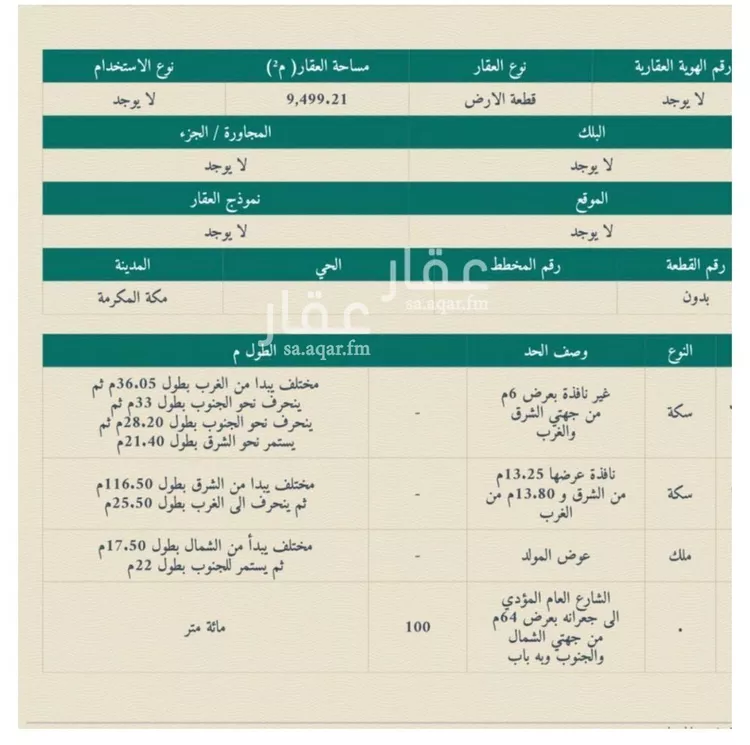 رقم الهوية العقارية نوع العقار مساحة العقار( م²) نوع الاستخدام
لا يوجد قطعة الارض 9,499.21 لا يوجد
البلك المجاورة / الجزء
لا يوجد لا يوجد
الموقع نموذج العقار
لا يوجد لا يوجد
رقم القطعة رقم المخطط الحي المدينة
بدون مكة المكرمة
عقار
sa.aqar.fm
عقار
sa.aqar.fm
النوع وصف الحد الطول م
سكة
غير نافذة بعرض 6م
من جهتي الشرق
والغرب
-
مختلف يبدا من الغرب بطول 36.05م ثم
ينحرف نحو الجنوب بطول 33م ثم
ينحرف نحو الجنوب بطول 28.20م ثم
يستمر نحو الشرق بطول 21.40م
سكة
نافذة عرضها 13.25م
من الشرق و 13.80م من
الغرب
-
مختلف يبدا من الشرق بطول 116.50م
ثم ينحرف الى الغرب بطول 25.50م
ملك
عوض المولد
-
مختلف يبدأ من الشمال بطول 17.50م
ثم يستمر للجنوب بطول 22م
.
الشارع العام المؤدي
الى جعرانه بعرض 64م
من جهتي الشمال
والجنوب وبه باب
100
مائة متر